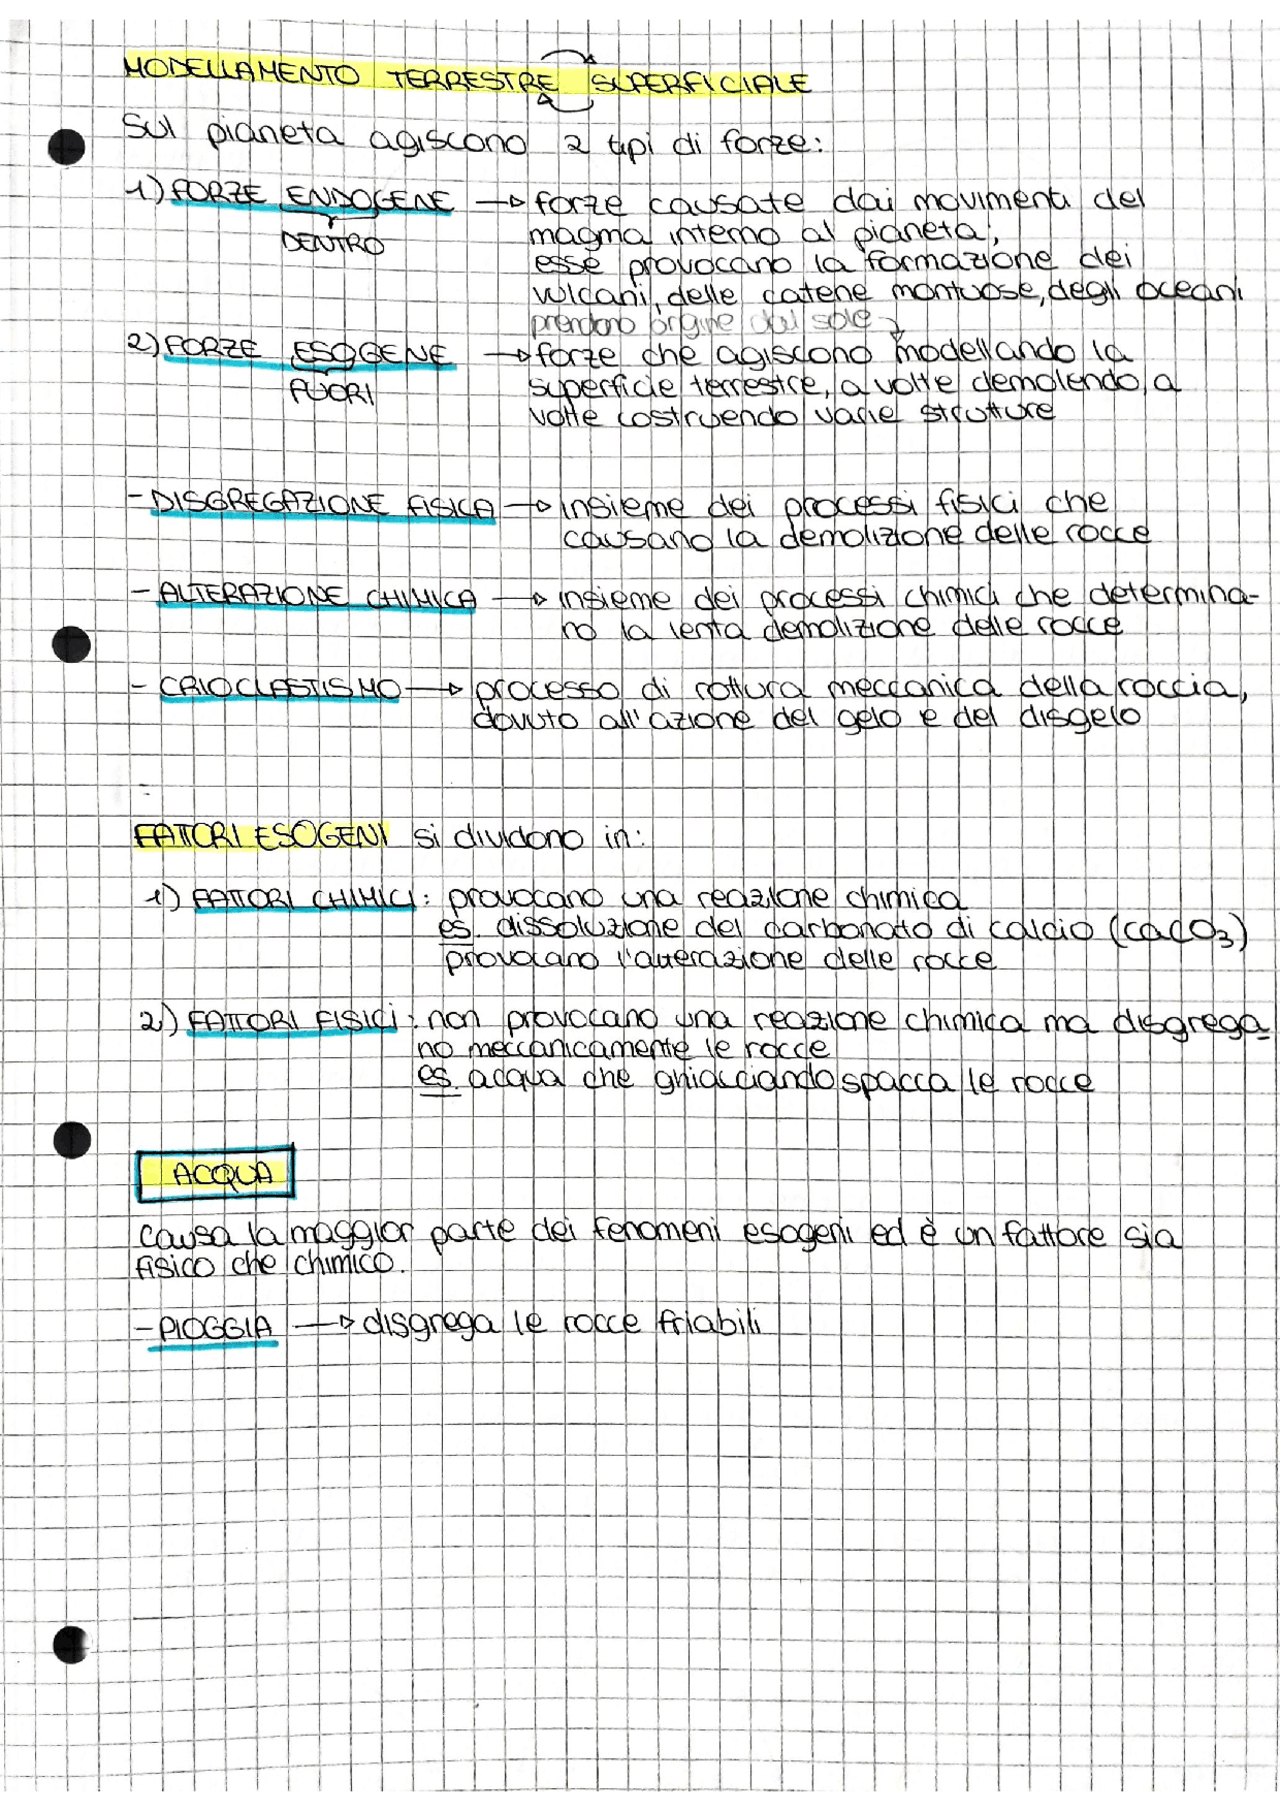 MODELLAMENTO TERRESTRE SUPERFICIALE
Sul pianeta agiscono 2 tipi di forze:
1) FORZE ENDOGENE → forze causate dai movimenti del
DENTRO
magma interno al pianeta;
esse provocano la formazione dei
vulcani, delle catene montuose, degli oceani
prendono origine dal sole
2) FORZE ESOGENE → forze che agiscono modellando la
FUORI
superficie terrestre, a volte demolendo, a
volte costruendo varie strutture
- DISGREGAZIONE FISICA → insieme dei processi fisici che
causano la demolizione delle rocce
- ALTERAZIONE CHIMICA → insieme dei processi chimici che determina-
no la lenta demolizione delle rocce
- CRIOCLASTISMO → processo di rottura meccanica della roccia,
dovuto all'azione del gelo e del disgelo
FATTORI ESOGENI si dividono in:
1) FATTORI CHIMICI: provocano una reazione chimica
es. dissoluzione del carbonato di calcio (CaCO3)
provocano l'alterazione delle rocce
2) FATTORI FISICI: non provocano una reazione chimica ma disgrega-
no meccanicamente le rocce
es. acqua che ghiacciando spacca le rocce
ACQUA
Causa la maggior parte dei fenomeni esogeni ed è un fattore sia
fisico che chimico.
- PIOGGIA → disgrega le rocce friabili